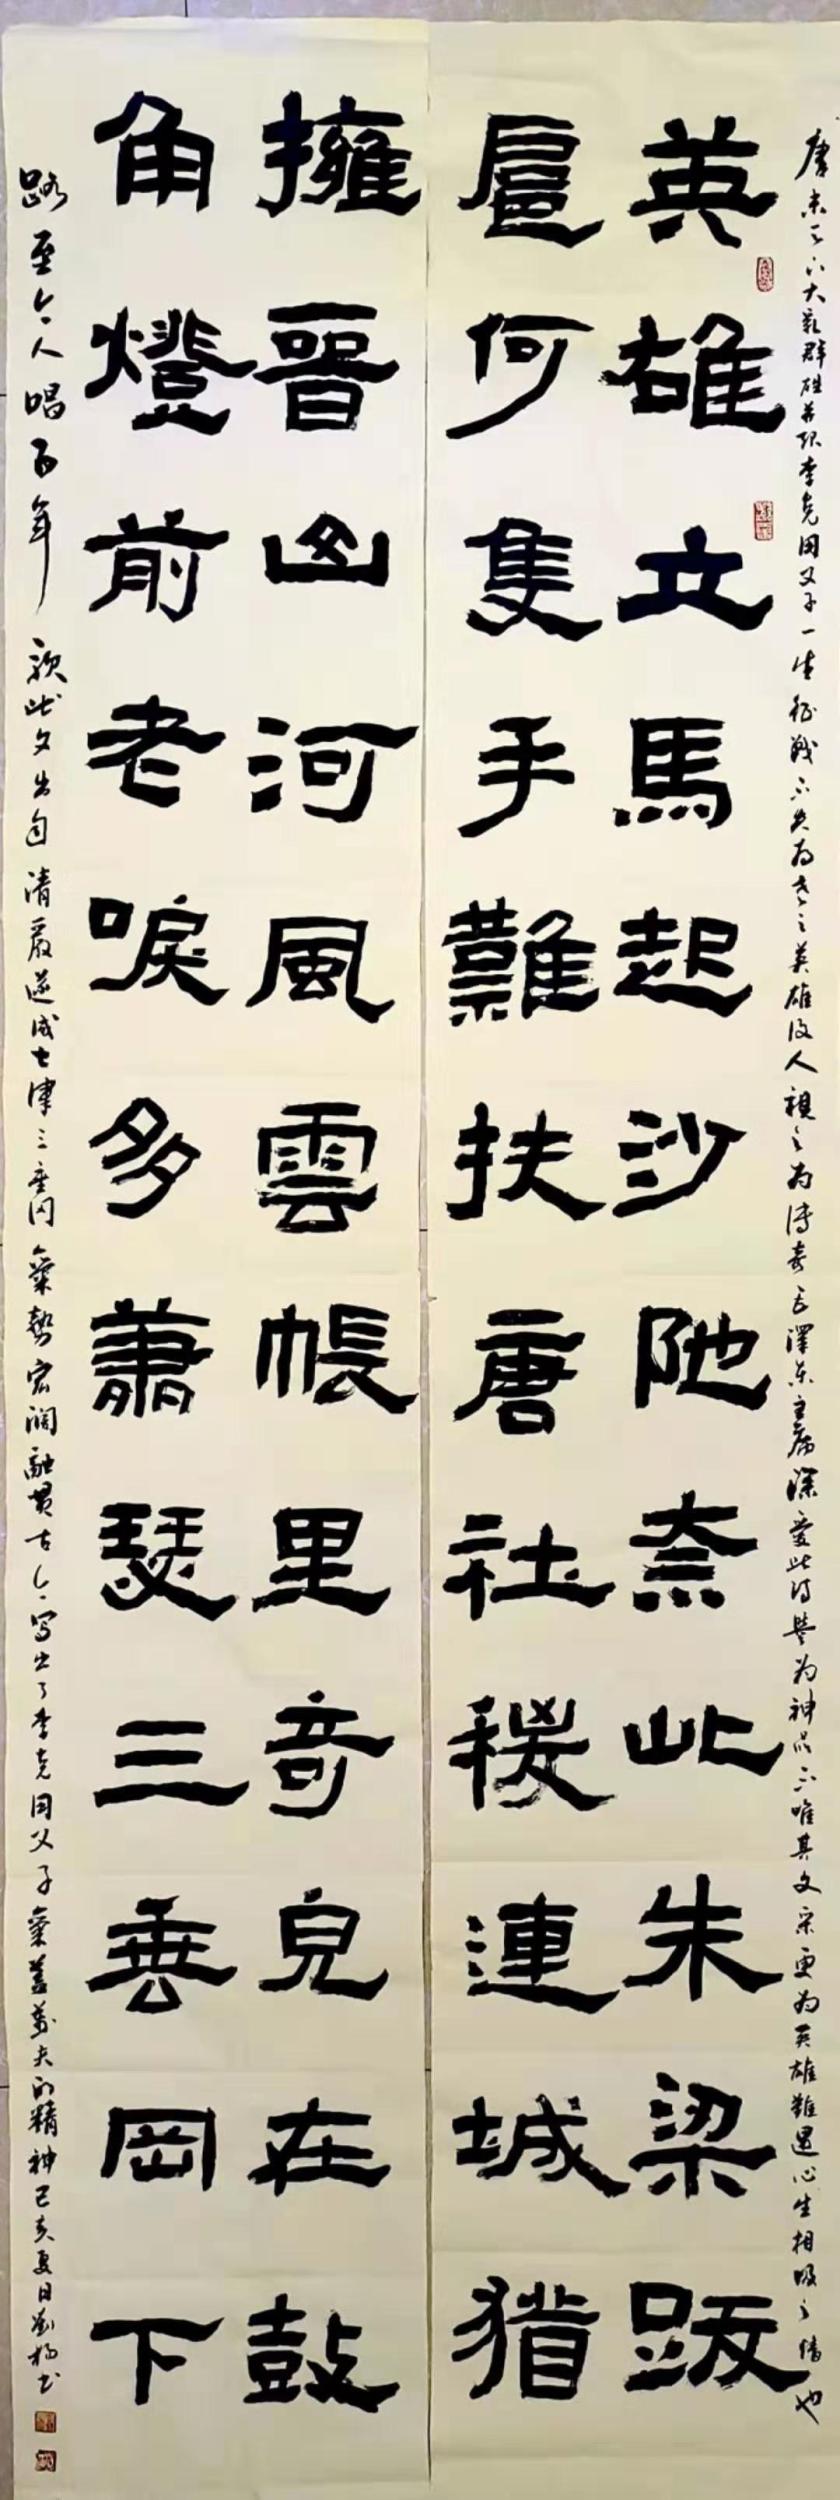 唐末天下大亂群雄并起李克用父子一生征戰不失為之英雄後人視之為傳奇毛澤東主席深愛此詩譽為神品不唯其文采更為英雄難遇心生相吸之情也
英雄立馬起沙陀奈此朱梁跋
扈何隻手難扶唐社稷連城猶
擁晉山河風雲帳里奇兒在鼓
角燈前老唳多蕭瑟三垂岡下
路至今人唱百年歌此文出自清嚴遂成七律三垂岡氣勢宏闊融貫古今寫出了李克用父子氣蓋萬夫的精神己亥夏日劉楊書